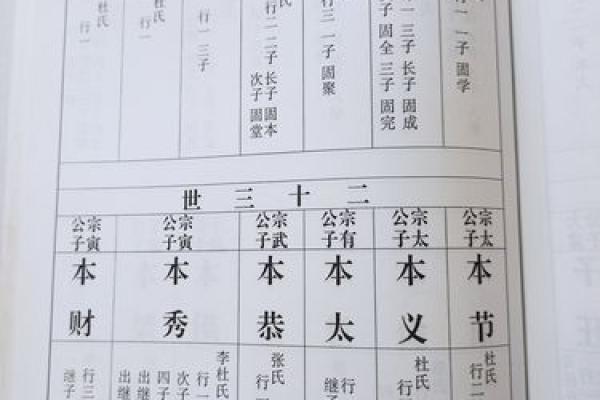 行一 一子 固学
行一 三子 长子 固成
子 固全 三子 固完
行三 一子 固聚
氏
行二 二子 长子 固本
次子 固堂
行一 三子
杜氏
行一
杜氏
行一
二十三世
宗太
公子
本节
杜氏
行二
宗太
公子
本义
杜氏
行一
宗有
公子
本太
行一
继子
宗武
公子
本恭
张氏
行一
宗寅
公子
本秀
李杜氏
行一
次子
四子
出继
出继
宗寅
公子
本财
行三
继子